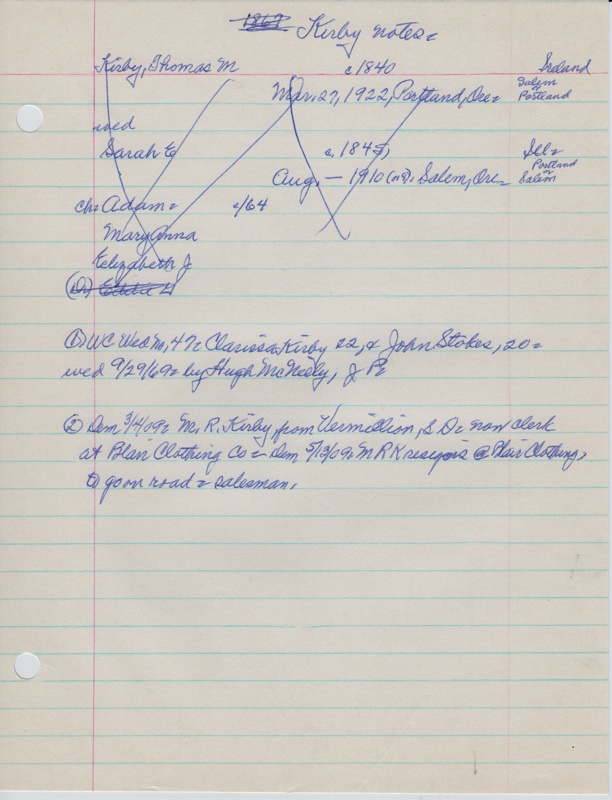 1867 Kirby notes=
Kirby, Thomas M c1840 Ireland
Mar. 27, 1922, Portland, Ore= Salem Portland
wed
Sarah E c. 1845, Ill=
Aug. — 1910 (n?). Salem, Ore= Portland Salem
ch= Adam= c/64
Mary Anna
Elizabeth J
(Dr) Eddie L
① WC Wed M, 47= Clarissa Kirby 22, & John Stokes, 20=
wed 9/29/69= by Hugh McNeely, J P=
② Dem 3/4/09= M, R. Kirby, from Vermillion, S D= now clerk
at Blair Clothing Co= Dem 5/13/09= M R K resigns @ Blair Clothing,
to go on road = salesman.